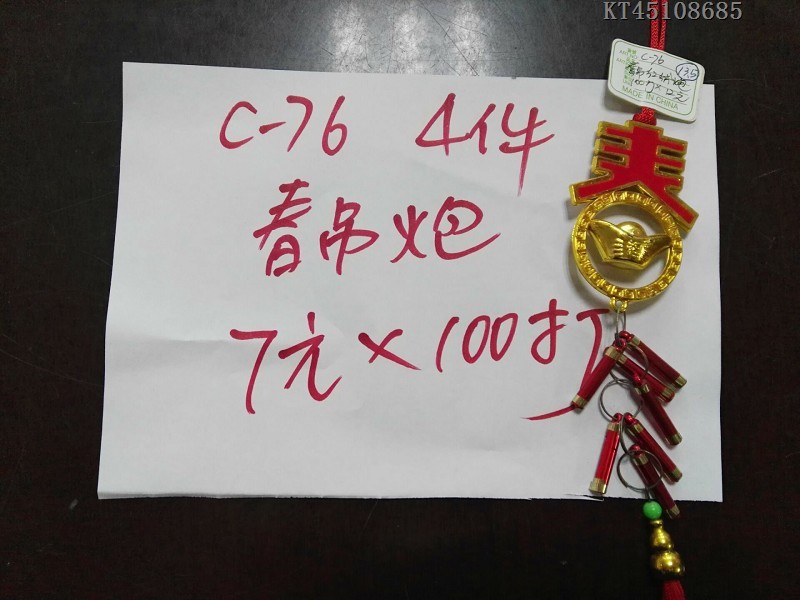 KT45108685
C-76
13.5
MADE IN CHINA
C-76 4件
春吊炮
7元×100打
春